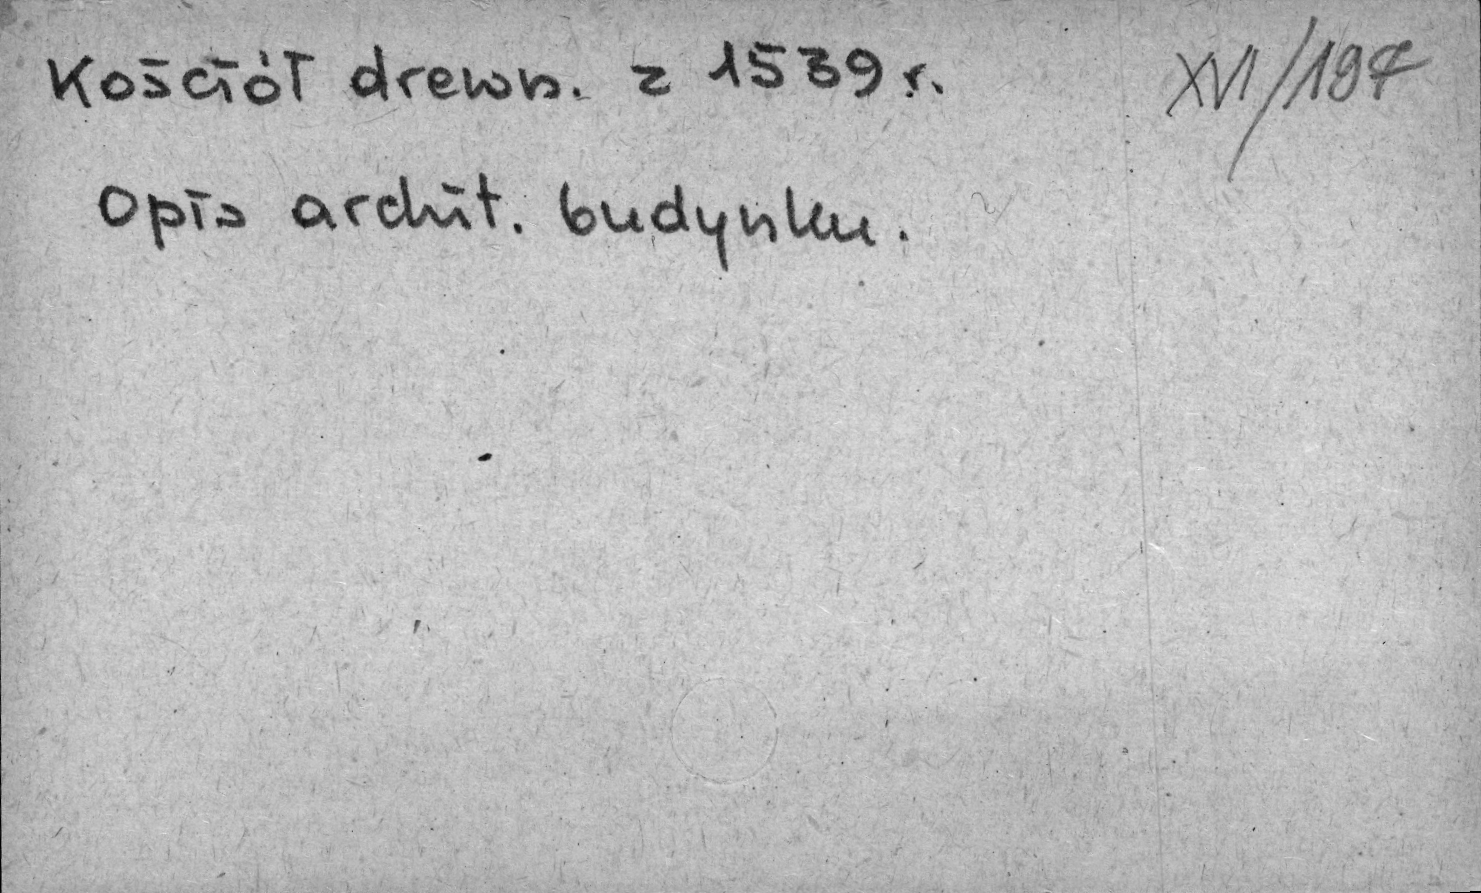 Kościół drewn. z 1539 r.
XVI/197
Opis archit. budynku.